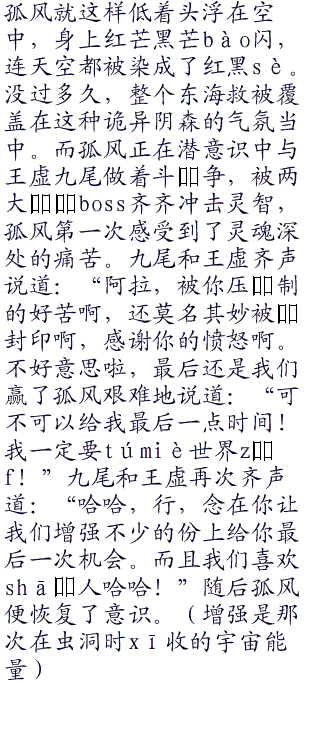 孤风就这样低着头浮在空
中，身上红芒黑芒bào闪，
连天空都被染成了红黑sè。
没过多久，整个东海救被覆
盖在这种诡异阴森的气氛当
中。而孤风正在潜意识中与
王虚九尾做着斗▯▯争，被两
大▯▯▯boss齐齐冲击灵智，
孤风第一次感受到了灵魂深
处的痛苦。九尾和王虚齐声
说道：“阿拉，被你压▯▯制
的好苦啊，还莫名其妙被▯▯
封印啊，感谢你的愤怒啊。
不好意思啦，最后还是我们
赢了孤风艰难地说道：“可
不可以给我最后一点时间！
我一定要túmiè世界z▯▯
f！” 九尾和王虚再次齐声
道：“哈哈，行，念在你让
我们增强不少的份上给你最
后一次机会。而且我们喜欢
shā▯▯人哈哈！”随后孤风
便恢复了意识。（增强是那
次在虫洞时xī收的宇宙能
量）